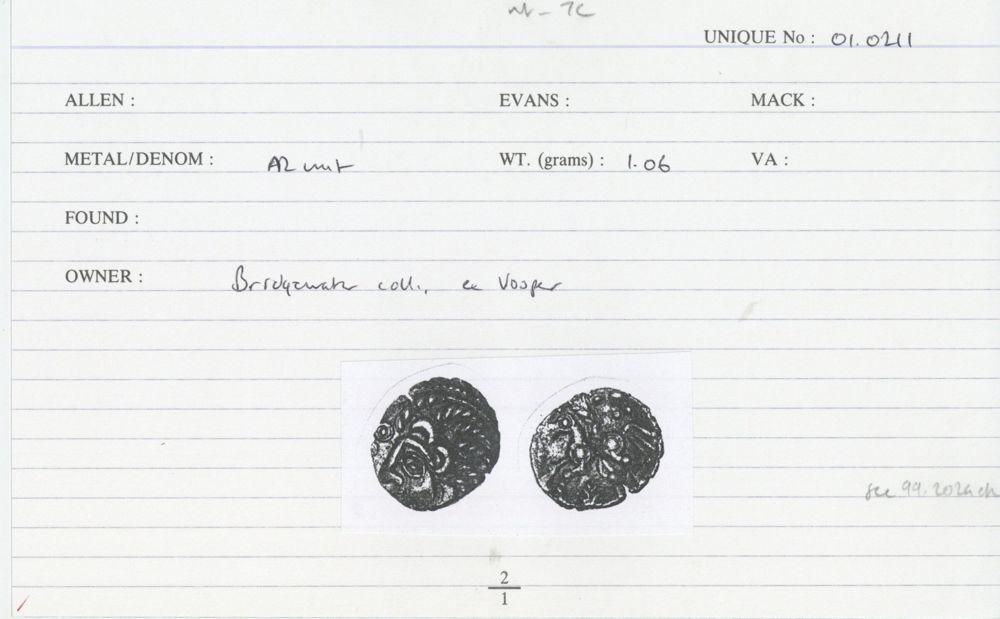 UNIQUE No : 01.0211
ALLEN : EVANS : MACK :
METAL/DENOM : AR unit WT. (grams) : 1.06 VA :
FOUND :
OWNER : Bridgewater coll., ex Vosper
see 99.2026
2
1